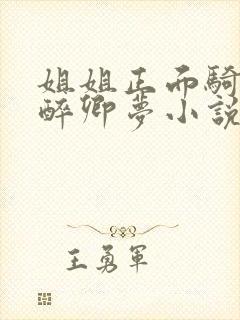 姐姐正而騎
醉卿夢小說
王勇軍